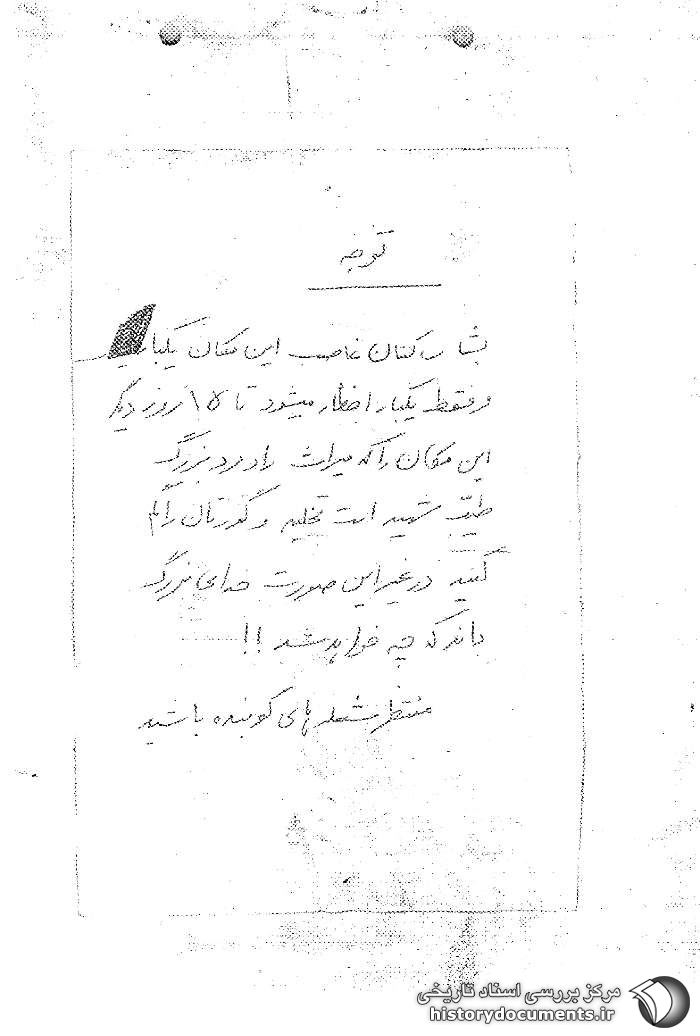 توجه
بشما ساکنان غاصب این مکان یکبار
و فقط یکبار اخطار میشود تا ۱۵ روز دیگر
این مکان را که میراث رادمرد بزرگ
طیب شهید است تخلیه و گورتان را گم
کنید در غیر این صورت خدای بزرگ
داند که چه خواهد شد !!
منتظر شعله های کوبنده باشید
مرکز بررسی اسناد تاریخی
historydocuments.ir